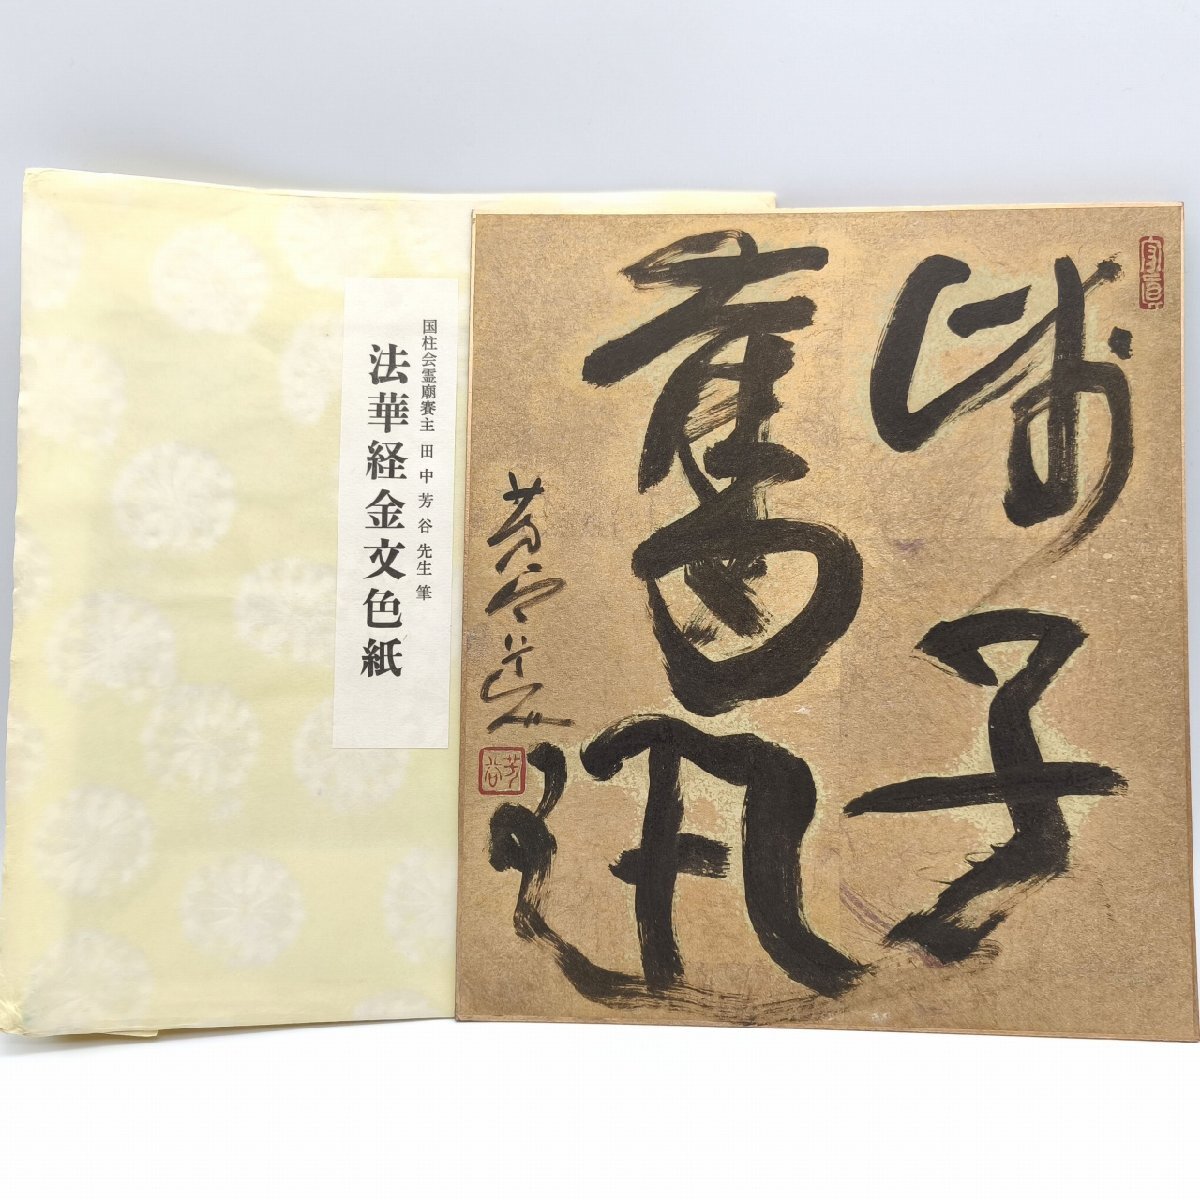 国柱会霊廟賽主 田中芳谷先生 筆
法華経金文色紙
師子
奮迅
芳谷